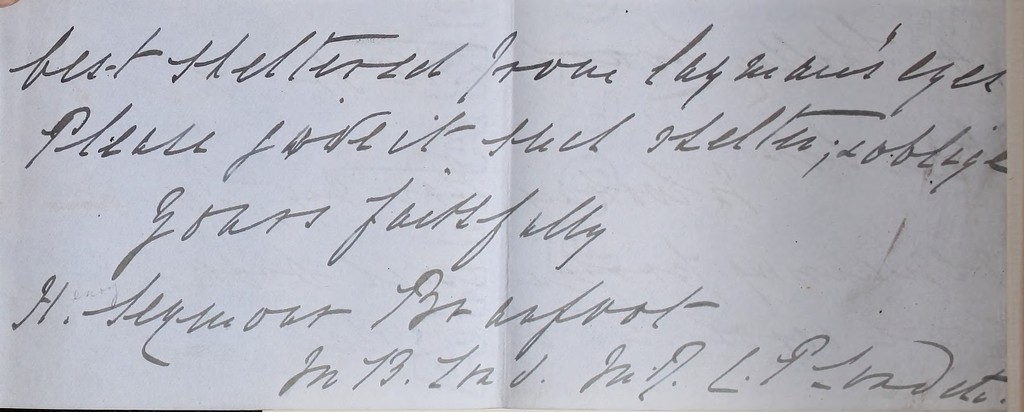 best sheltered from layman's eyes
Please give it such shelter, & oblige
Yours faithfully
H. Seymour Branfoot
M B. Lond. M. R. C. P Lond etc.